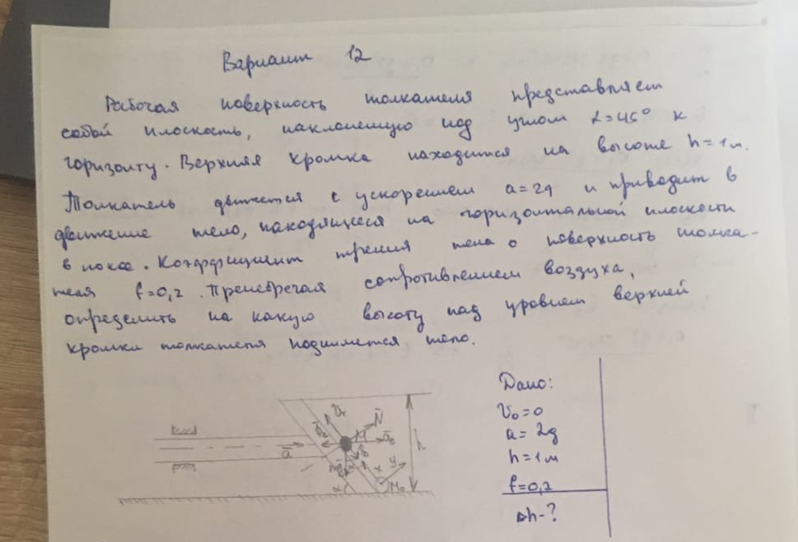 Вариант 12
Рабочая поверхность толкателя представляет
собой плоскость, наклоненную под углом α=45° к
горизонту. Верхняя кромка находится на высоте h=1м.
Толкатель движется с ускорением a=2g и приводит в
движение тело, находящееся на горизонтальной плоскости
в покое. Коэффициент трения тела о поверхность толка-
теля f=0,2. Пренебрегая сопротивлением воздуха,
определить на какую высоту над уровнем верхней
кромки толкателя поднимется тело.
Дано:
V₀=0
a=2g
h=1м
f=0,2
Δh-?
a
N
M
h
x
y
M₀
α